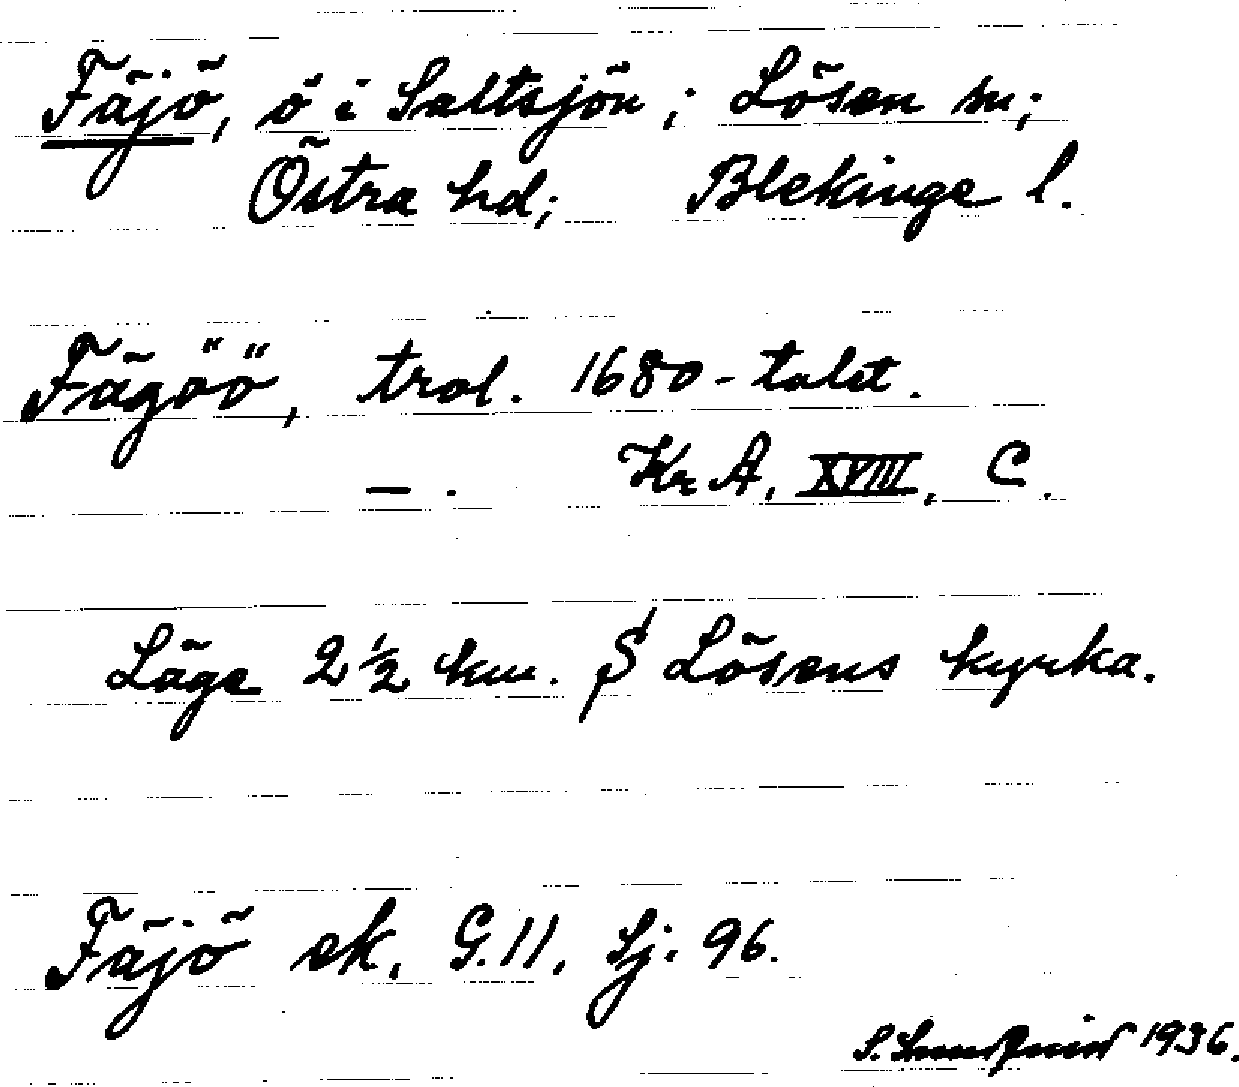 Fäjö, ö i Saltsjön; Lösen sn;
Östra hd; Blekinge l.
Fägöö, trol. 1680-talet.
— . Kr A, XVIII, C.
Läge 2 1/2 km. S Lösens kyrka.
Fäjö ek. G.11, Sj. 96.
S. 1936.